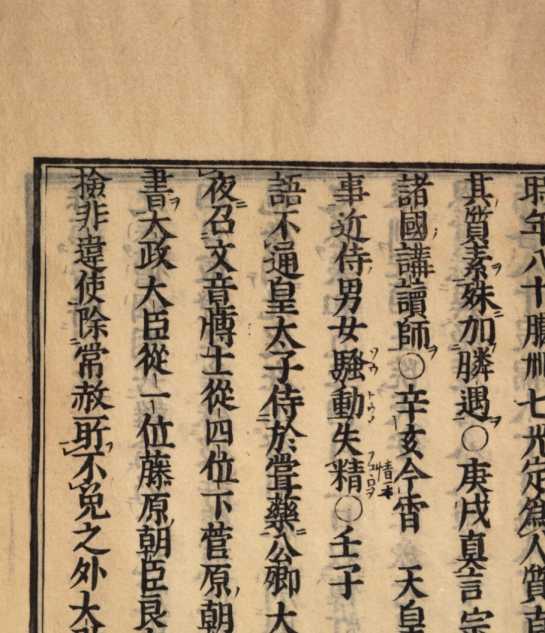 時年八十臈卌七光定爲人質直
其質素殊加隣遇○庚戌眞言宗
諸國講讀師○辛亥今宵 天皇
事近侍男女騷動失精○壬子
語不通皇太子侍於甞藥公卿大
夜召文音博士從四位下菅原朝
書太政大臣從一位藤原朝臣良
撿非違使除常赦所不免之外大